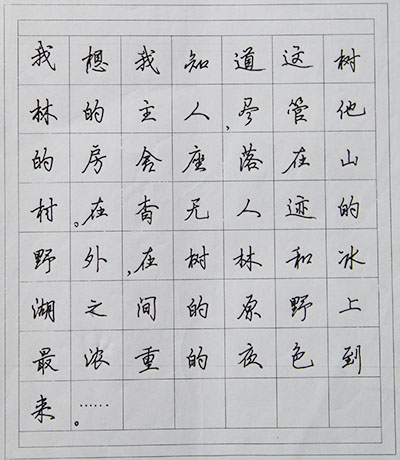 我想我知道这树
林的主人,尽管他
的房舍座落在山
村。在杳无人迹的
野外,在树林和冰
湖之间的原野上
最浓重的夜色到
来。……